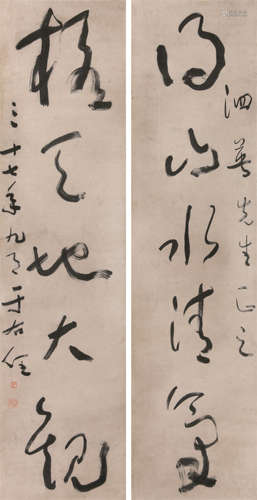 泗英先生正之
得山水清氣
極天地大觀
三十七年九月 于右任